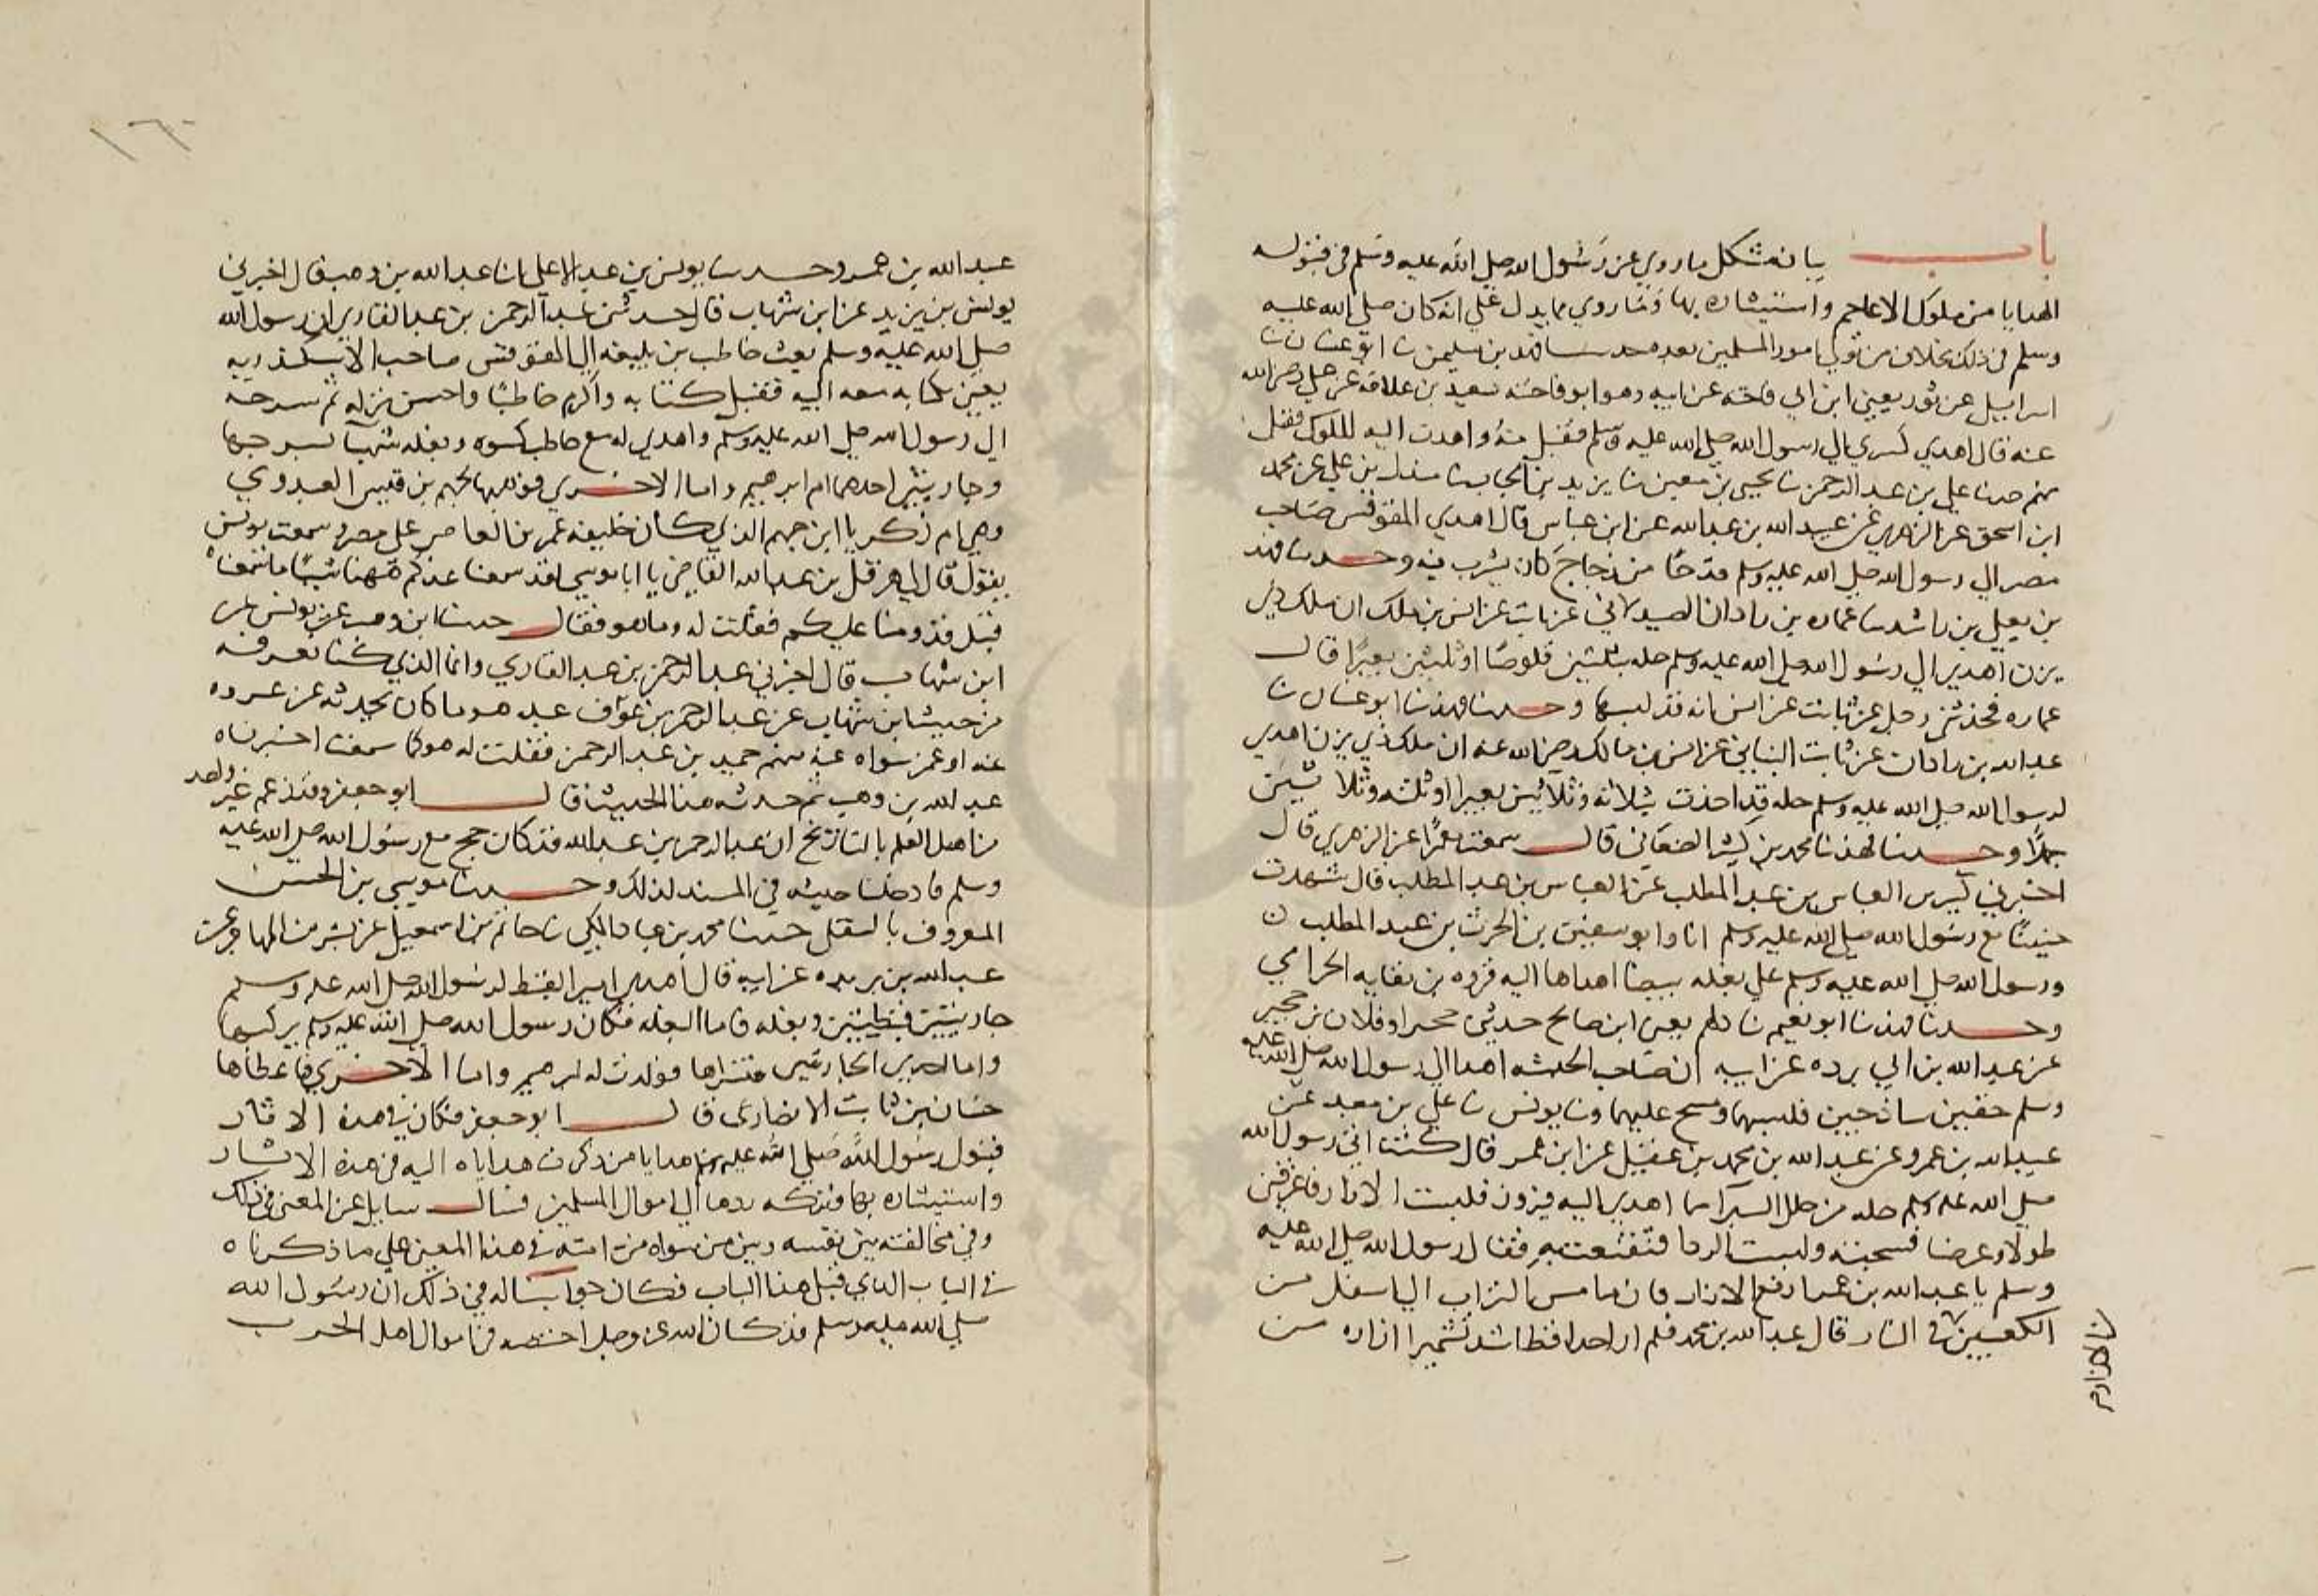 باب بيان مشكل ما روي عن رسول الله صلى الله عليه وسلم في قبوله
الهدايا من ملوك الاعاجم واستيثاره بها وما روي مما يدل علي انه كان صلى الله عليه
وسلم في ذلك بخلاف من تولي امور المسلمين بعده حدثنا فهد بن سليمن نا ابو غسان نا
اسرايل عن ثوير يعني ابن ابي فاخته عن ابيه وهو ابو فاخته سعيد بن علاقه عن علي رضي الله
عنه قال اهدي كسري الي رسول الله صلى الله عليه وسلم فقبل منه واهدت اليه الملوك فقبل
منهم حدثنا علي بن عبد الرحمن نا يحيي بن معين نا يزيد بن الحباب نا مندل بن علي عن محمد
ابن اسحق عن الزهري عن عبيد الله بن عبد الله عن ابن عباس قال اهدي المقوقس صاحب
مصر الي رسول الله صلى الله عليه وسلم قدحا من زجاج كان يشرب فيه وحدثنا فهد
بن يعلي بن راشد نا عماره بن زادان الصيدلاني عن ثابت عن انس بن ملك ان ملك ذي
يزن اهدي الي رسول الله صلى الله عليه وسلم حله بثلثين قلوصا او ثلثين بعيرا قال
عماره فحدثني رجل عن ثابت عن انس انه قد لبسها وحدثنا فهد نا ابو غسان نا
عبد الله بن زادان عن ثابت البناني عن انس بن مالك رضي الله عنه ان ملك ذي يزن اهدي
لرسول الله صلى الله عليه وسلم حله قد اخذت بثلاثه وثلاثين بعيرا او ثلثه وثلاثين
جملا وحدثنا فهد نا محمد بن كثير الصنعاني قال سمعت معمرا عن الزهري قال
اخبرني كثير بن العباس بن عبد المطلب عن العباس بن عبد المطلب قال شهدت
حنينا مع رسول الله صلى الله عليه وسلم انا وابو سفين بن الحرث بن عبد المطلب
ورسول الله صلى الله عليه وسلم علي بغله بيضا اهداها اليه فروه بن نفايه الحرامي
وحدثنا فهد نا ابو نعيم نا دلهم يعني ابن صالح حدثني حجير او فلان بن حجير
عن عبد الله بن ابي برده عن ابيه ان صاحب الحبشه اهدا الي رسول الله صلى الله عليه
وسلم خفين ساذجين فلبسهما ومسح عليهما ونا يونس نا علي بن معبد عن
عبيد الله بن عمرو عن عبد الله بن محمد بن عقيل عن ابن عمر قال كنت اني رسول الله
صلى الله عليه وسلم حله من حلل السيرا مما اهدي اليه فيروز فلبست الازار فاغرقني
طولا وعرضا فسحبته ولبست الردا فتقنعت به فقال رسول الله صلى الله عليه
وسلم يا عبد الله بن عمر ارفع الازار فان ما مس التراب الي اسفل من
الكعبين في النار قال عبد الله بن محمد فلم ار احدا قط اشد تشميرا ازاره من
عبد الله بن عمر وحدثنا يونس بن عبد الاعلي انا عبد الله بن وهب قال اخبرني
يونس بن يزيد عن ابن شهاب قال حدثني عبد الرحمن بن عبد القاري ان رسول الله
صلى الله عليه وسلم بعث حاطب بن بلتعه الي المقوقس صاحب الاسكندريه
يعني بكتابه معه اليه فقبل كتابه واكرم حاطبا واحسن نزله ثم سرحه
الي رسول الله صلى الله عليه وسلم واهدي له مع حاطب كسوه وبغله شهبا بسرجها
وجاريتين احدهما ام ابرهيم واما الاخري فوهبها لجهم بن قيس العبدوي
وهي ام زكريا ابن جهم الذي كان خليفه عمر بن العاص علي مصر سمعت يونس
يقول قال لي هرقل بن عبد الله القاضي يا ابا موسي لقد سمعنا عندكم ههنا شيا ما سمعناه
قبل قدومنا عليكم فقلت له وما هو فقال حدثنا ابن وهب عن يونس عن
ابن شهاب قال اخبرني عبد الرحمن بن عبد القاري وانما الذي كنا نعرفه
من حديث ابن شهاب عن عبد الرحمن بن عوف عبد هو ما كان يحدثه عن عروه
عنه او عمن سواه عنه منهم حميد بن عبد الرحمن فقلت له هو كما سمعت اخبرناه
عبد الله بن وهب ثم حدثه هذا الحديث قال ابو جعفر وقد زعم غير واحد
من اهل العلم بالتاريخ ان عبد الرحمن بن عبد الله قد كان حج مع رسول الله صلى الله عليه
وسلم فادخلنا حديثه في المسند لذلك وحدثنا موسي بن الحسن
المعروف بالسقلي حدثنا محمد بن عباد المكي نا حاتم بن اسمعيل عن بشير بن المهاجر عن
عبد الله بن بريده عن ابيه قال اهدي امير القبط لرسول الله صلى الله عليه وسلم
جاريتين قبطيتين وبغله فاما البغله فكان رسول الله صلى الله عليه وسلم يركبها
واما احدي الجاريتين فتسراها فولدت له ابرهيم واما الاخري فاعطاها
حسان بن ثابت الانصاري قال ابو جعفر فكان في هذه الاثار
قبول رسول الله صلى الله عليه وسلم هدايا من ذكرت هداياه اليه في هذه الاثار
واستيثاره بها وتركه ردها الي اموال المسلمين فسال سايل عن المعني في ذلك
وفي مخالفته بين نفسه وبين من سواه من امته في هذا المعني علي ما ذكرناه
في الباب الذي قبل هذا الباب فكان جوابنا له في ذلك ان رسول الله
صلى الله عليه وسلم قد كان الله عز وجل اختصه من اموال اهل الحرب